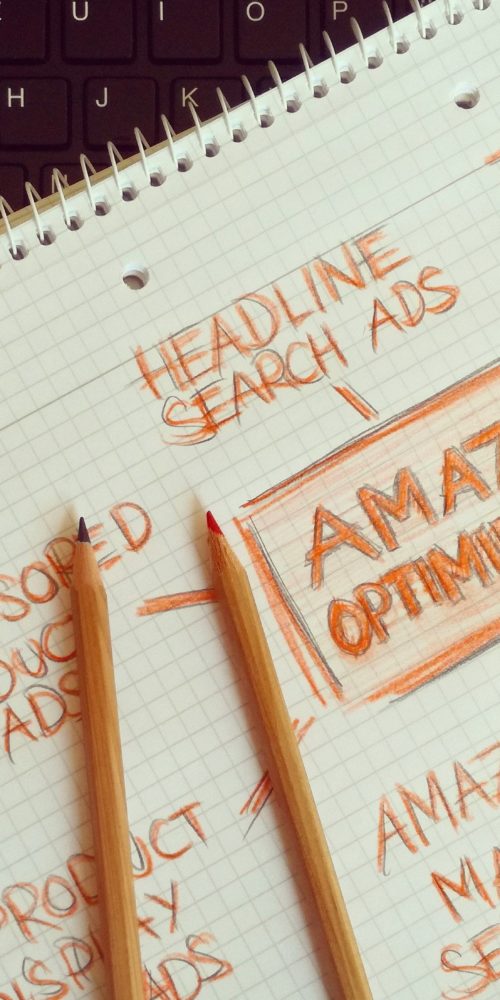 U I O P
H J K
HEADLINE
SEARCH ADS
AMAZ
OPTIMI
SORED
DUC
ADS
PRODUCT
DISPLAY
ADS
AMAZ
MA
SE